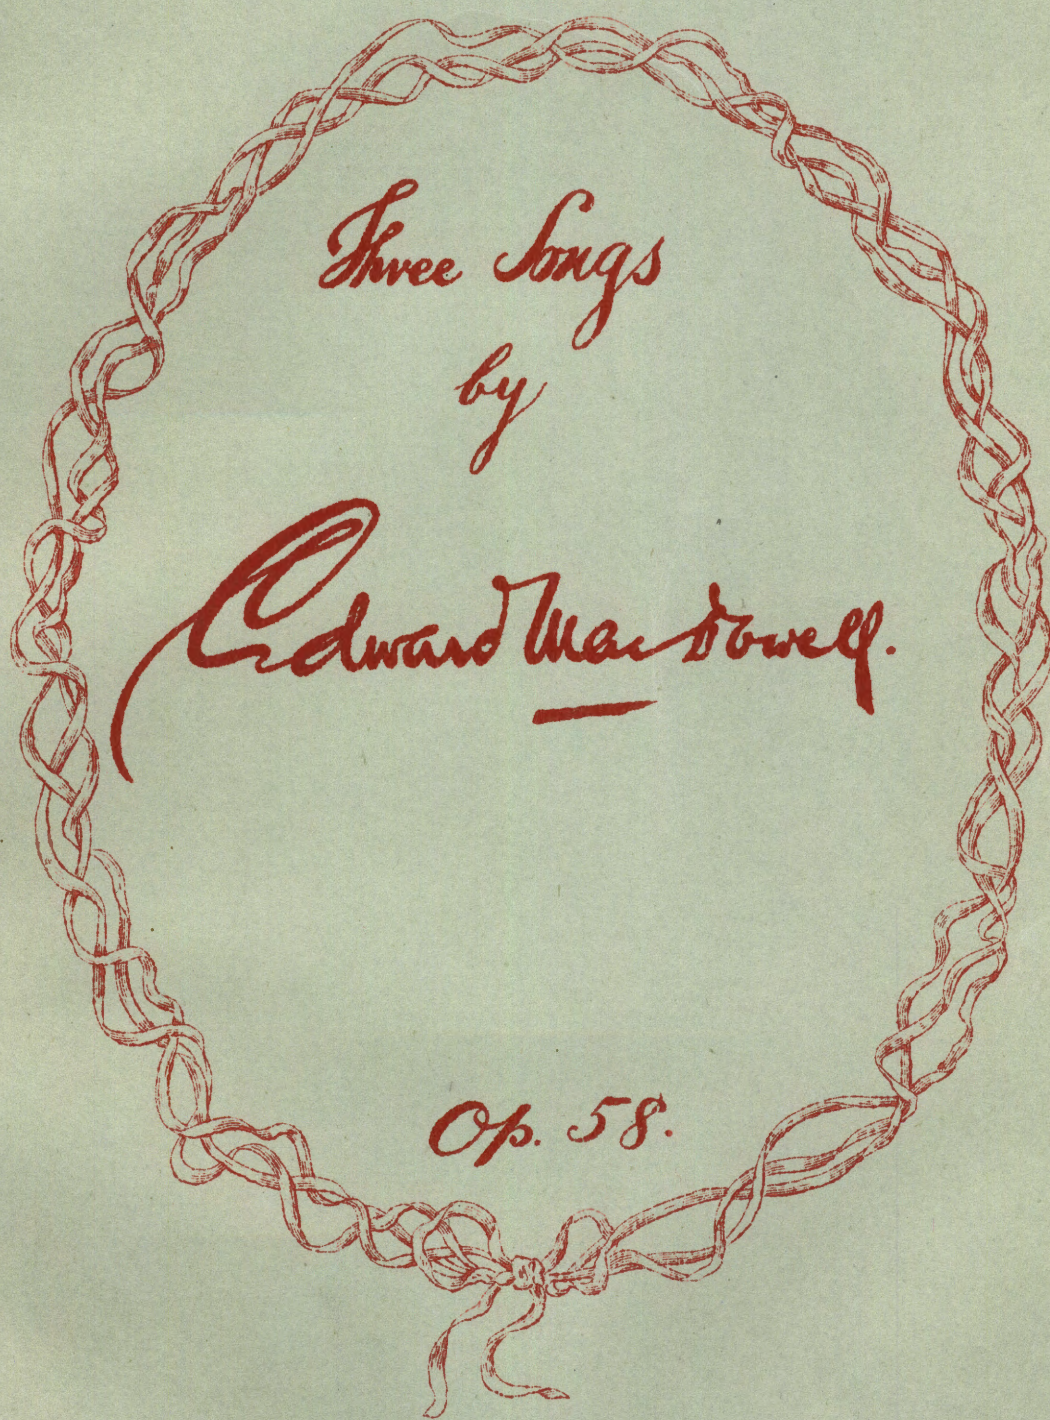 Three Songs
by
Edward MacDowell.
Op. 58.